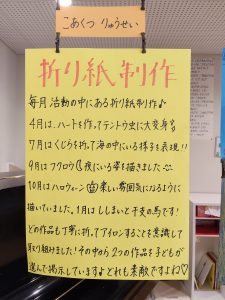 こあくつ りゅうせい
折り紙制作
毎月活動の中にある折り紙制作♪
4月は、ハートを作ってテントウ虫に大変身
7月はくじらを折って海の中にいる様子を表現!!
9月はフクロウ 夜にいる姿を描きました
10月はハロウィーン 楽しい雰囲気になるように
描いていました。1月はししまいと干支の馬です!
どの作品も丁寧に折ってアイロンすることを意識して
取り組みました! その中から2つの作品を子どもが
選んで掲示しています♪どれも素敵ですよね♡